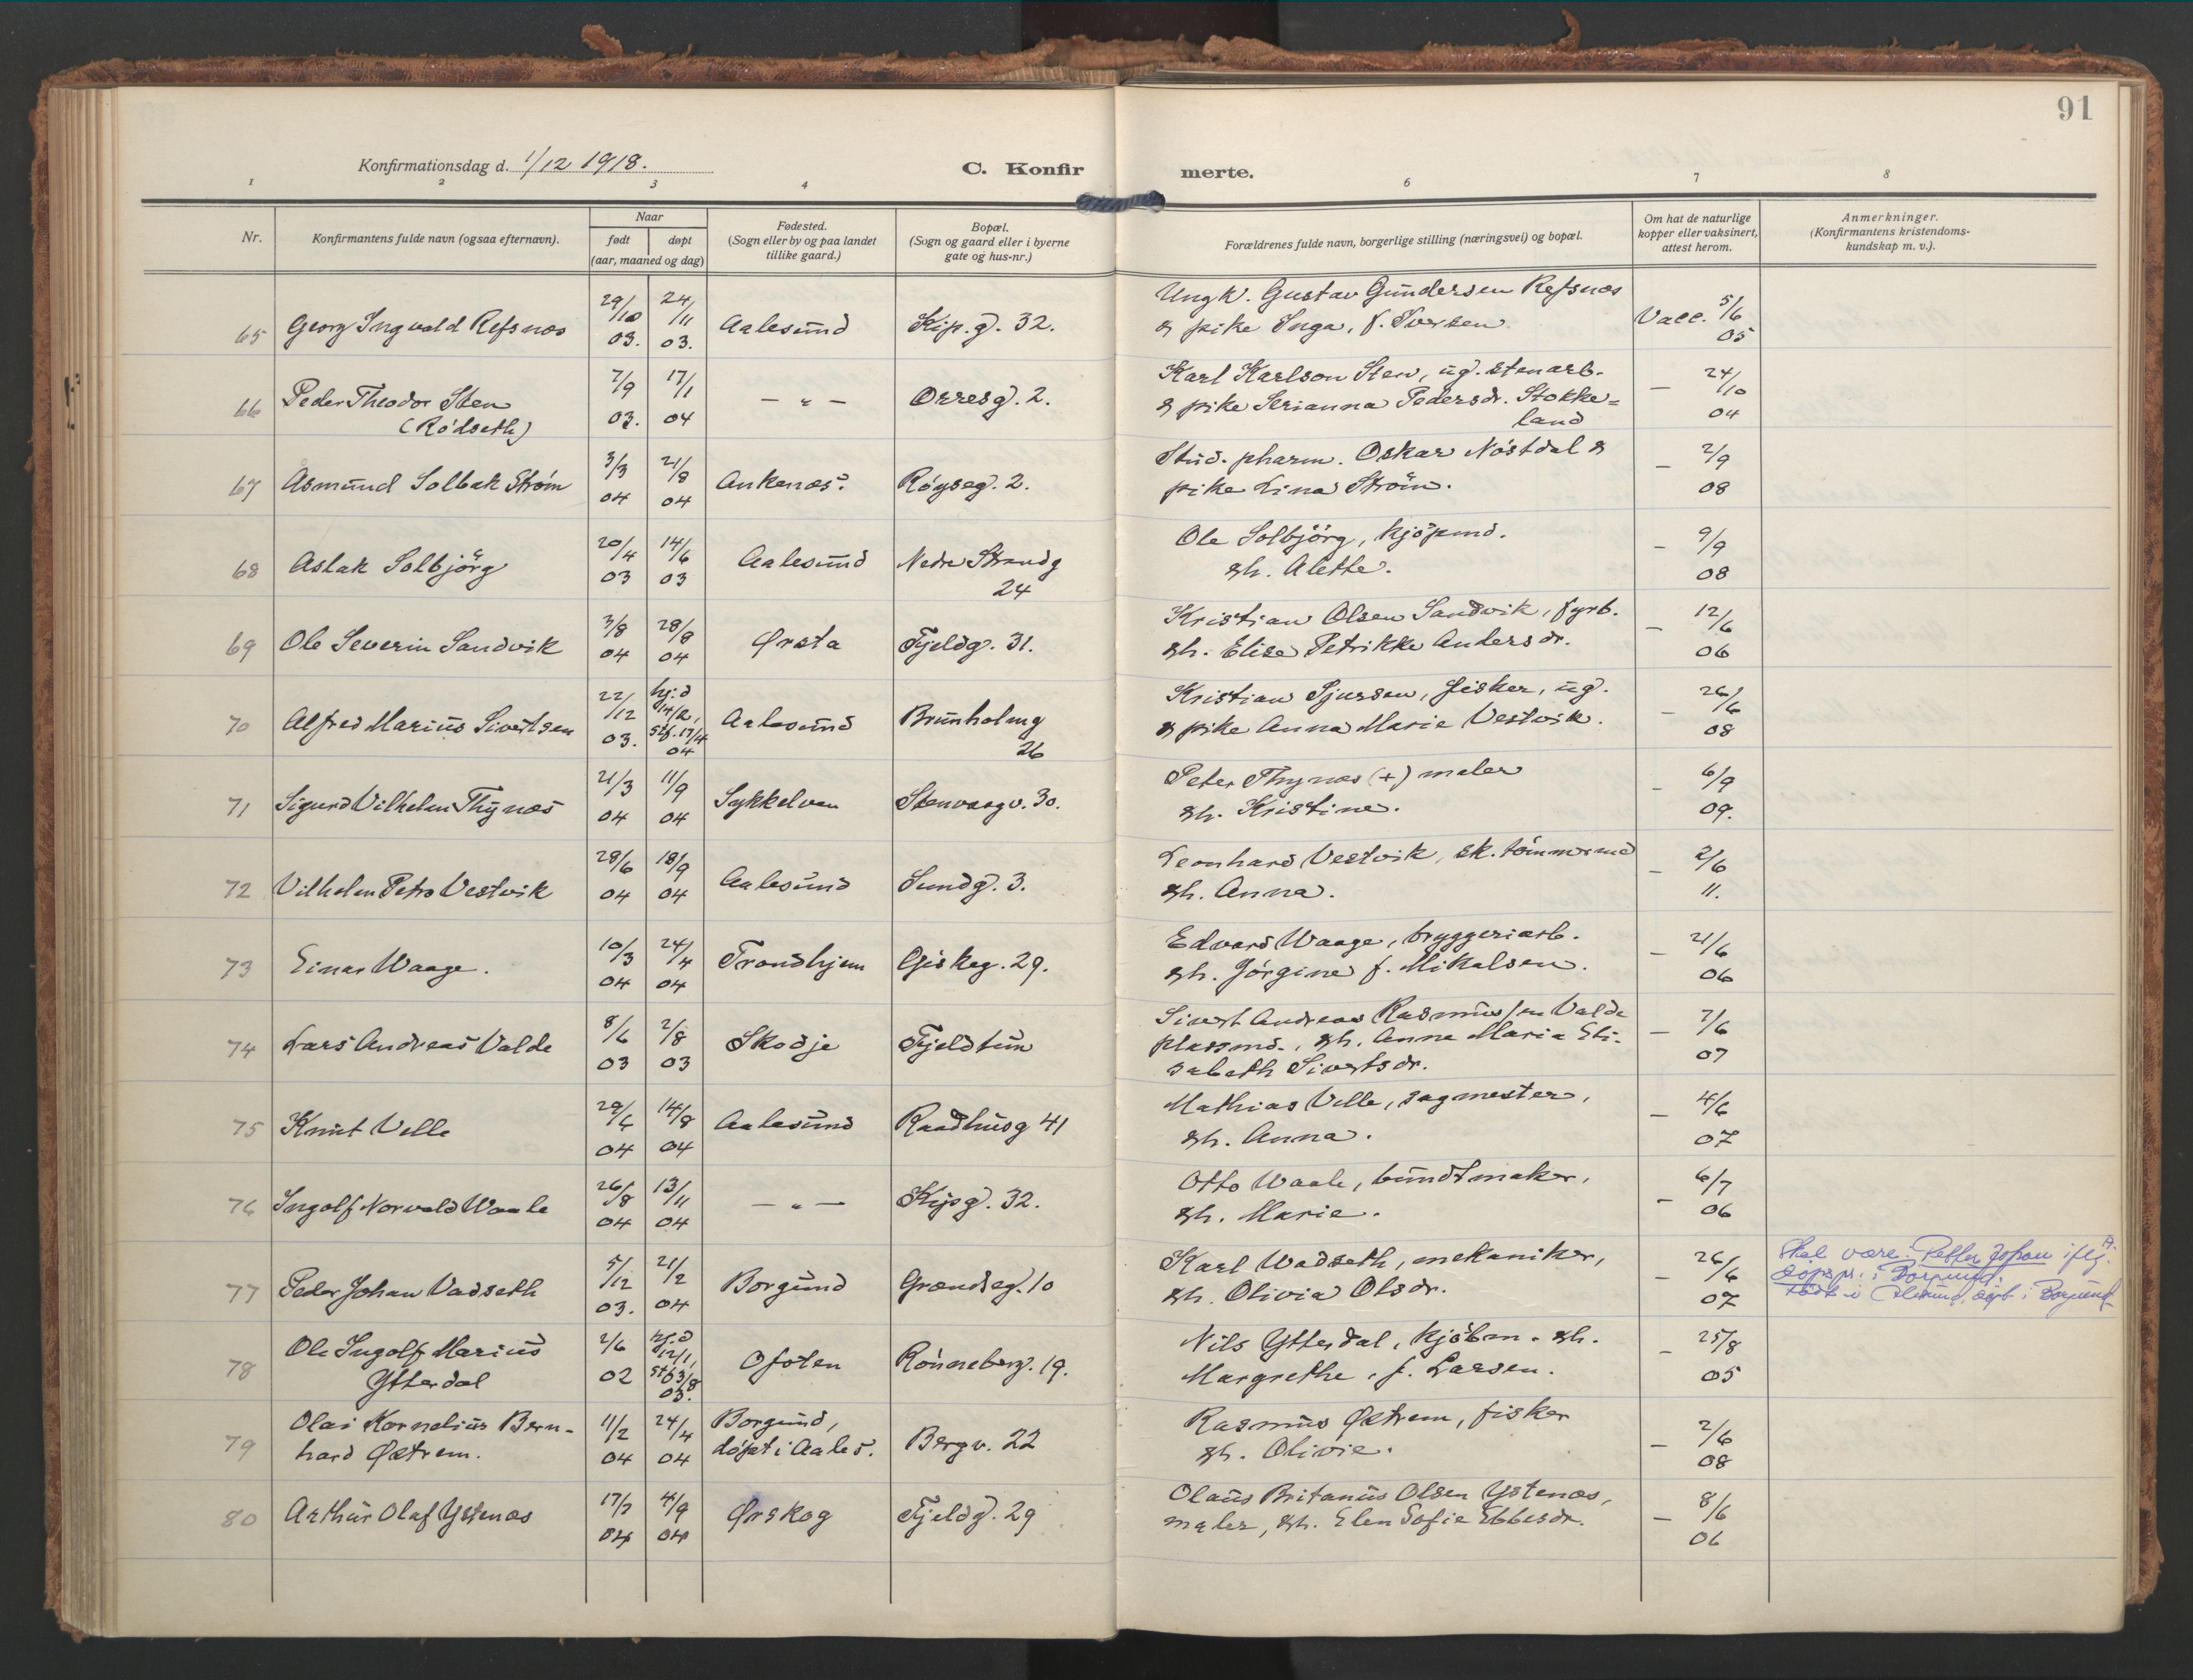 91
Konfirmationsdag d. 1/12 1918.
C. Konfirmerte.
1 2 3 4 6 7 8
Nr.
Konfirmantens fulde navn (ogsaa efternavn).
Naar
født døpt
(aar, maaned og dag)
Fødested.
(Sogn eller by og paa landet
tillike gaard.)
Bopæl.
(Sogn og gaard eller i byerne
gate og hus-nr.)
Forældrenes fulde navn, borgerlige stilling (næringsvei) og bopæl.
Om hat de naturlige
kopper eller vaksinert,
attest herom.
Anmerkninger.
(Konfirmantens kristendoms-
kundskap m. v.).
65 Georg Ingvald Refsnæs 29/10 03. 24/11 03. Aalesund Kip.g. 32. Ungk. Gustav Gundersen Refsnæs
& pike Inga, f. Iversen Vacc. 5/6 05
66 Peder Theodor Sten
(Rødseth) 7/9 03. 17/1 04 — " — Orresg. 2. Karl Karlson Sten, ug. stenarb.
& pike Serianna Pedersdr. Stokke=
land — 24/10 04
67 Asmund Solbak Strøm 3/3 04 21/8 04 Ankenæs. Røyseg. 2. Stud. pharm. Oskar Nøstdal &
pike Lina Strøm. — 2/9 08
68 Aslak Solbjörg 20/4 03 14/6 03 Aalesund Nedre Strandg
24 Ole Solbjörg, kjöpmd.
& h. Alette. — 9/9 08
69 Ole Severin Sandvik 3/8 04 28/8 04 Ørsta Fjeldg. 31. Kristian Olsen Sandvik, fyrb.
& h. Elise Petrikke Andersdr. — 12/6 06
70 Alfred Marius Sivertsen 22/12 03. hj.d 14/2, stf. 17/4 04 Aalesund Brunholmg
26 Kristian Sjursen, fisker, ug.
& pike Anna Marie Vestvik. — 26/6 08
71 Sigurd Vilhelm Thynæs 21/3 04 11/9 04 Sykkelven Stenvaagv. 30. Peter Thynæs (+) maler
& h. Kristine. — 6/9 09.
72 Vilhelm Petro Vestvik 28/6 04 18/9 04 Aalesund Sundg. 3. Leonhard Vestvik, sk. tömmermd
& h. Anna. — 2/6 11.
73 Einar Waage. 10/3 04 24/4 04 Trondhjem Giskeg. 29. Edvard Waage, bryggeriarb.
& h. Jørgine f. Mikalsen. — 21/6 06
74 Lars Andreas Valde 8/6 03 2/8 03 Skodje Fjeldtun Sivert Andreas Rasmussen Valde
plassmd., & h. Anne Maria Eli-
sabeth Sivertsdr. — 7/6 07
75 Knut Velle 29/6 04 14/8 04 Aalesund Raadhusg 41 Mathias Velle, sagmester,
& h. Anna. — 4/6 07
76 Ingolf Norvald Waale 26/8 04 13/11 04 — " — Kipg. 32. Otto Waale, bundtmaker,
& h. Marie. — 6/7 06
77 Peder Johan Vadseth 5/12 03. 21/2 04 Borgund Grændseg. 10 Karl Wadseth, mekaniker,
& h. Olivia Olsdr. — 26/6 07 Skal være: Petter Johan iflg.
døpspr. i Borgund.
Født i Ålesund, døpt i Borgund
78 Ole Ingolf Marius
Ytterdal 2/6 02 hj.d 12/1, stf. 3/8 03. Ofoten Rønneberg. 19. Nils Ytterdal, kjøbm. & h.
Margrethe, f. Larsen. — 25/8 05
79 Olai Kornelius Bern-
hard Østrem. 11/2 04 24/4 04 Borgund,
døpt i Aales. Bergv. 22 Rasmus Østrem, fisker
& h. Olivie. — 2/6 08
80 Arthur Olaf Ystenæs 17/7 04 4/9 04 Ørskog Fjeldg. 29 Olaus Britanius Olsen Ystenæs,
maler, & h. Elen Sofie Ebbesdr. — 8/6 06